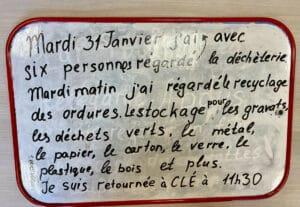 Mardi 31 Janvier j'ai avec
six personnes régardé la déchèterie
Mardi matin j'ai régardé le recyclage
des ordures. Le stockage pour les gravats,
les déchets verts, le métal,
le papier, le carton, le verre, le
plastique, le bois et plus.
Je suis retournée à CLÉ à 11h30